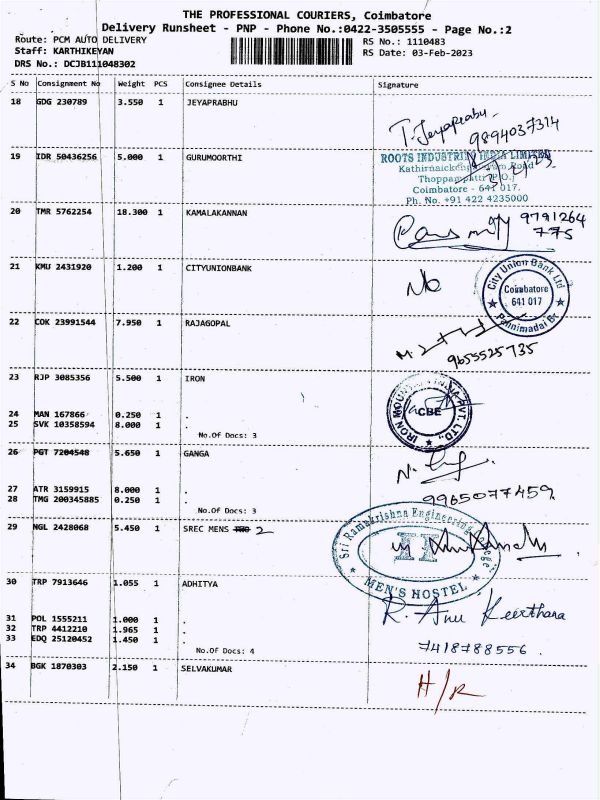 THE PROFESSIONAL COURIERS, Coimbatore
Delivery Runsheet - PNP - Phone No.:0422-3505555 - Page No.:2
Route: PCM AUTO DELIVERY
RS No.: 1110483
Staff: KARTHIKEYAN
RS Date: 03-Feb-2023
DRS No.: DCJB111048302
S No Consignment No Weight PCS Consignee Details Signature
18 GDG 230789 3.550 1 JEYAPRABHU
T. Jeyaprabu
9894037314
19 IDR 50436256 5.000 1 GURUMOORTHI
ROOTS INDUSTRIES INDIA LIMITED
Road
Thoppampatti (P.O.)
Coimbatore - 641 017.
Ph. No. +91 422 4235000
20 TMR 5762254 18.300 1 KAMALAKANNAN
9791264
775
21 KMU 2431920 1.200 1 CITYUNIONBANK
City Union Bank Ltd
Coimbatore
641 017
22 COK 23991544 7.950 1 RAJAGOPAL
9655525735
23 RJP 3085356 5.500 1 IRON
IRON MOUNTAIN INDIA PVT. LTD.,
CBE
24 MAN 167866 0.250 1 .
25 SVK 10358594 8.000 1 .
No.Of Docs: 3
26 PGT 7204548 5.650 1 GANGA
27 ATR 3159915 8.000 1 .
28 TMG 200345885 0.250 1 .
9965077459
No.Of Docs: 3
29 NGL 2428068 5.450 1 SREC MENS 2
Sri Ramakrishna Engineering College
II
MEN'S HOSTEL
30 TRP 7913646 1.055 1 ADHITYA
R. Anu Keerthana
31 POL 1555211 1.000 1 .
32 TRP 4412210 1.965 1 .
33 EDQ 25120452 1.450 1 .
7418788556
No.Of Docs: 4
34 BGK 1870303 2.150 1 SELVAKUMAR
H/R